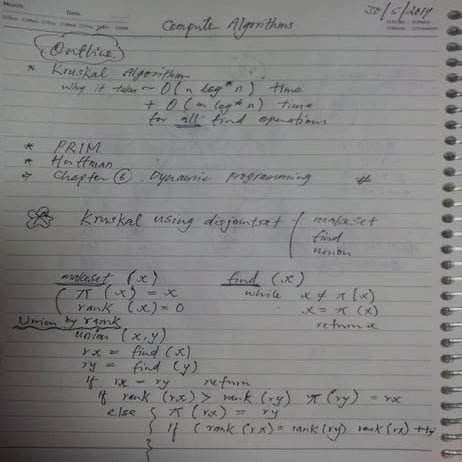 Month Date.
30/5/2019
Compute Algorithms
Outline
* Kruskal Algorithm
why it takes ~ O(n log* n) time
+ O(m log* n) time
for all find operations
* PRIM
* Huffman
→ Chapter ⑥ Dynamic programming #
Kruskal using disjointset { makeset
find
union
makeset (x) find (x)
π (x) = x while x ≠ π(x)
rank (x) = 0 x = π (x)
return x
Union by rank
union (x,y)
rx = find (x)
ry = find (y)
if rx = ry return
if rank (rx) > rank (ry) π(ry) = rx
else { π (rx) = ry
if (rank (rx) = rank(ry) rank(rx) ++;
}